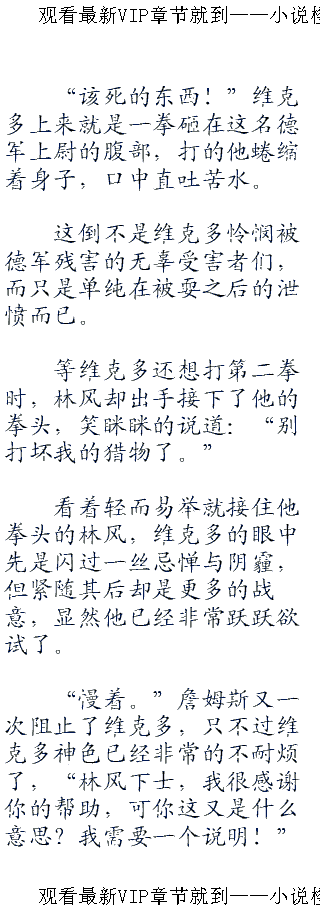 观看最新VIP章节就到——小说
“该死的东西！”维克
多上来就是一拳砸在这名德
军上尉的腹部，打的他蜷缩
着身子，口中直吐苦水。
这倒不是维克多怜悯被
德军残害的无辜受害者们，
而只是单纯在被耍之后的泄
愤而已。
等维克多还想打第二拳
时，林风却出手接下了他的
拳头，笑眯眯的说道：“别
打坏我的猎物了。”
看着轻而易举就接住他
拳头的林风，维克多的眼中
先是闪过一丝忌惮与阴霾，
但紧随其后却是更多的战
意，显然他已经非常跃跃欲
试了。
“漫着。”詹姆斯又一
次阻止了维克多，只不过维
克多神色已经非常的不耐烦
了，“林风下士，我很感谢
你的帮助，可你这又是什么
意思？我需要一个说明！”
观看最新VIP章节就到——小说